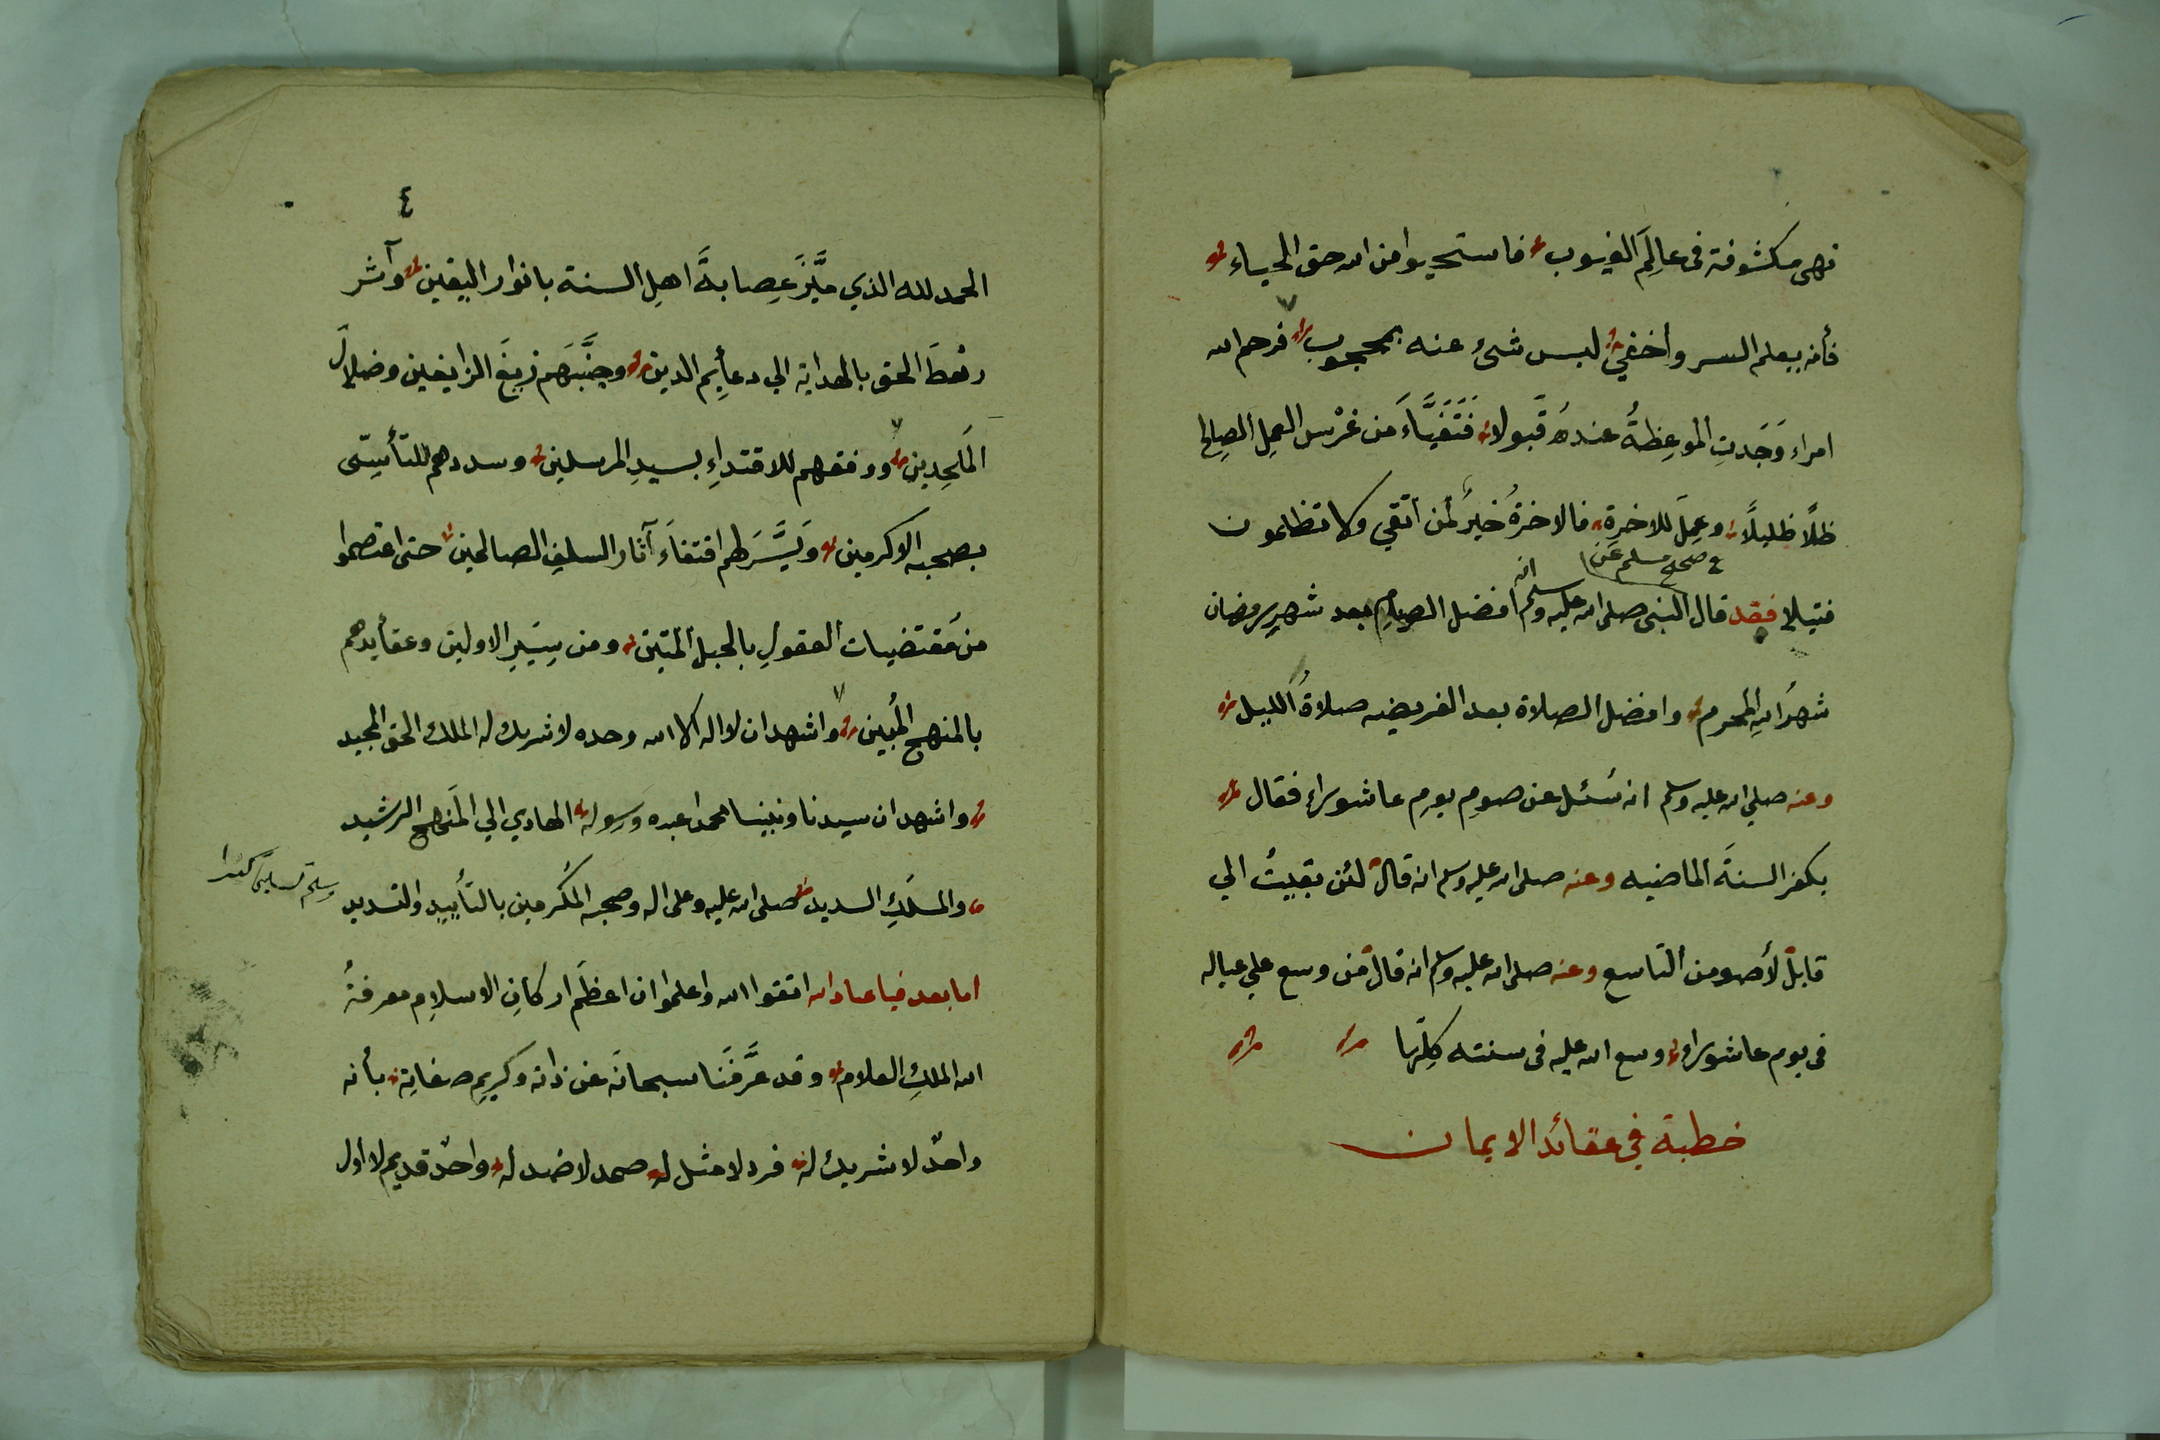 فهى مكشوفة فى عالِمَ الغيوب فاستحيوا من الله حق الحياء
فأنه يعلم السر وأخفي ليس شئ عنه بمحجوب فرحم الله
امراء وَجَدتِ الموعِظةُ عندهُ قَبولا فَتَفَيَّاءَ من غرْس العمِل الصالِح
ظلًا ظليلًا وعمِلَ للاخرةِ فالاخرةُ خيرٌ لمن اتقي ولا تظلمون
فى صحيح مسلم عن
فتيلا فقد قال النبى صلى الله عليه وسلم انه افضل الصيام بعد شهرِ رمضان
شهرُ اللهِ المحرم وافضل الصلاة بعد الفريضه صلاةُ الليل
وعنه صلي الله عليه وسلم انه سُئل عن صومِ يومِ عاشوراء فقال
يكفر السنةَ الماضيه وعنه صلى الله عليه وسلم انه قال لئن بقيتُ الي
قابل لأصومن التاسع وعنه صلى الله عليه وسلم انه قال من وسع علي عياله
فى يوم عاشوراء وسع الله عليه فى سنته كلِّها
خطبة في عقائد الايمان
٤
الحمد لله الذي ميَّزَ عِصابةَ اهلِ السنة بانوار اليقين وآثر
رهطَ الحق بالهداية الي دعأيِم الدين وجنَّبَهم زيغَ الزايغين وضلالَ
الملحِدين ووفقهم للاقتداءِ بسيدِ المرسلين وسددهم للتأسِّى
بصحبه الاكرمين ويَسَّرَ لهم اقتفاءَ آثار السلفِ الصالحين حتى اعتصموا
من مُقتضيات العقولِ بالحبل المتين ومن سِيَرِ الاولين وعقأيدهم
بالمنهج المُبين واشهد ان لا اله الا الله وحده لا شريك له الملك الحق المجيد
واشهد ان سيدنا ونبينا محمدا عبده ورسوله الهادي الي المَنهج الرشيد
والمسلَكِ السديد صلى الله عليه وعلى اله وصحبه المكرمين بالتأييدِ والتسديد
وسلم تسليما كثيرا
اما بعد فيا عباد الله اتقوا الله واعلموا ان اعظَم اركانِ الاسلامِ معرفةُ
الله الملكِ العلام وقد عرَّفَنا سبحانَه عن ذاته وكريمِ صفاتِه بأنه
واحدٌ لا شريك له فرد لا مثل له صمد لا ضد له واحدٌ قديم لا اول